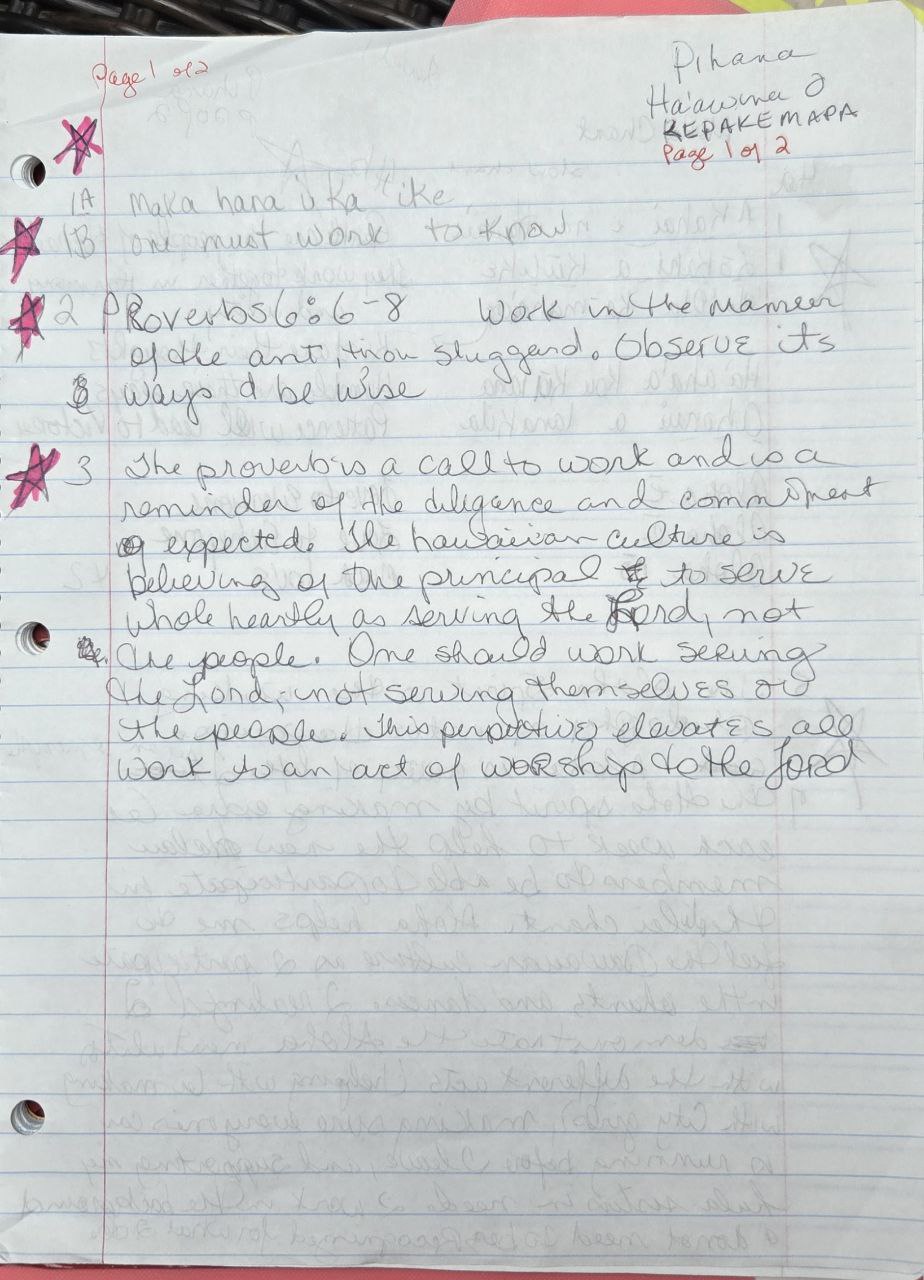 Page 1 of 2
Pihana
Ha'awina 8
KEPAKEMAPA
Page 1 of 2
1A maka hana ù ka ike
1B one must work to know
2 PRoverbs 6:6-8 Work in the manner
of the ant, thou sluggard. Observe its
ways d be wise
3 The proverb is a call to work and is a
reminder of the diligence and commitment
expected. The hawaiian culture is
believing of the principal to serve
whole heartly as serving the Lord, not
the people. One should work serving
the Lord, not serving themselves or
the people. This perpective elevates all
work to an act of worship to the Lord